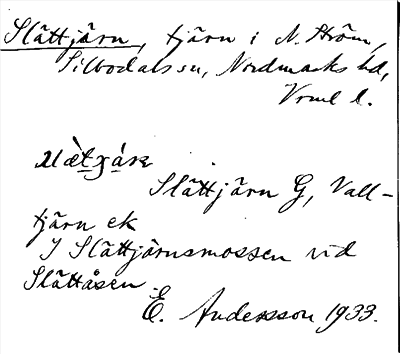 Slättjärn, tjärn i N. Ström,
Silbodals sn, Nordmarks hd,
Vrml l.
Slättjärn G, Vall-
tjärn ek
J Slättjärnsmossen vid
Slättåsen.
E. Andersson 1933.